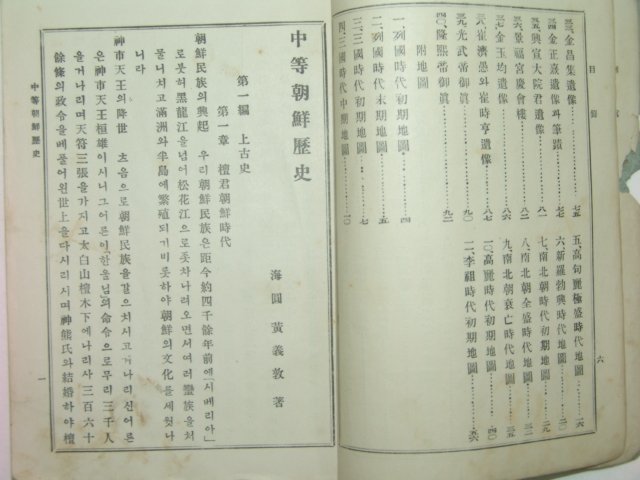 目錄
六
三三、金昌集遺像……七五
三四、金正喜遺像과筆蹟……七七
三五、興宣大院君遺像……八一
三六、景福宮慶會樓……八二
三七、金玉均遺像……八六
三八、崔濟愚와崔時亨遺像……八七
三九、光武帝御眞……九一
四〇、隆熙帝御眞……九二
附地圖
一、列國時代初期地圖……四
二、列國時代末期地圖……五
三、三國時代初期地圖……七
四、三國時代中期地圖……一〇
五、高句麗極盛時代地圖……一六
六、新羅勃興時代地圖……二〇
七、南北朝時代初期地圖……二九
八、南北朝全盛時代地圖……三二
九、南北朝衰亡時代地圖……三五
一〇、高麗時代初期地圖……四〇
一一、李祖時代初期地圖……五六
中等朝鮮歷史
海圓 黃義敦 著
第一編 上古史
第一章 檀君朝鮮時代
朝鮮民族의興起 우리朝鮮民族은距今約四千餘年前에「시베리아」
로붓허黑龍江을넘어松花江으로좃차나려오면서여러蠻族을처
물니치고滿洲와半島에繁殖되기비롯하야朝鮮의文化를세웟나
니라
神市天王의降世 초음으로朝鮮民族을걸치시고거나리신어른
은神市天王桓雄이시니그어른이한울님의命令으로무리三千人
을거나리며天符三張을가지고太白山檀木下에나리사三百六十
餘條의政令을베풀어원世上을다시리시며神熊氏와結婚하야檀
中等朝鮮歷史
一